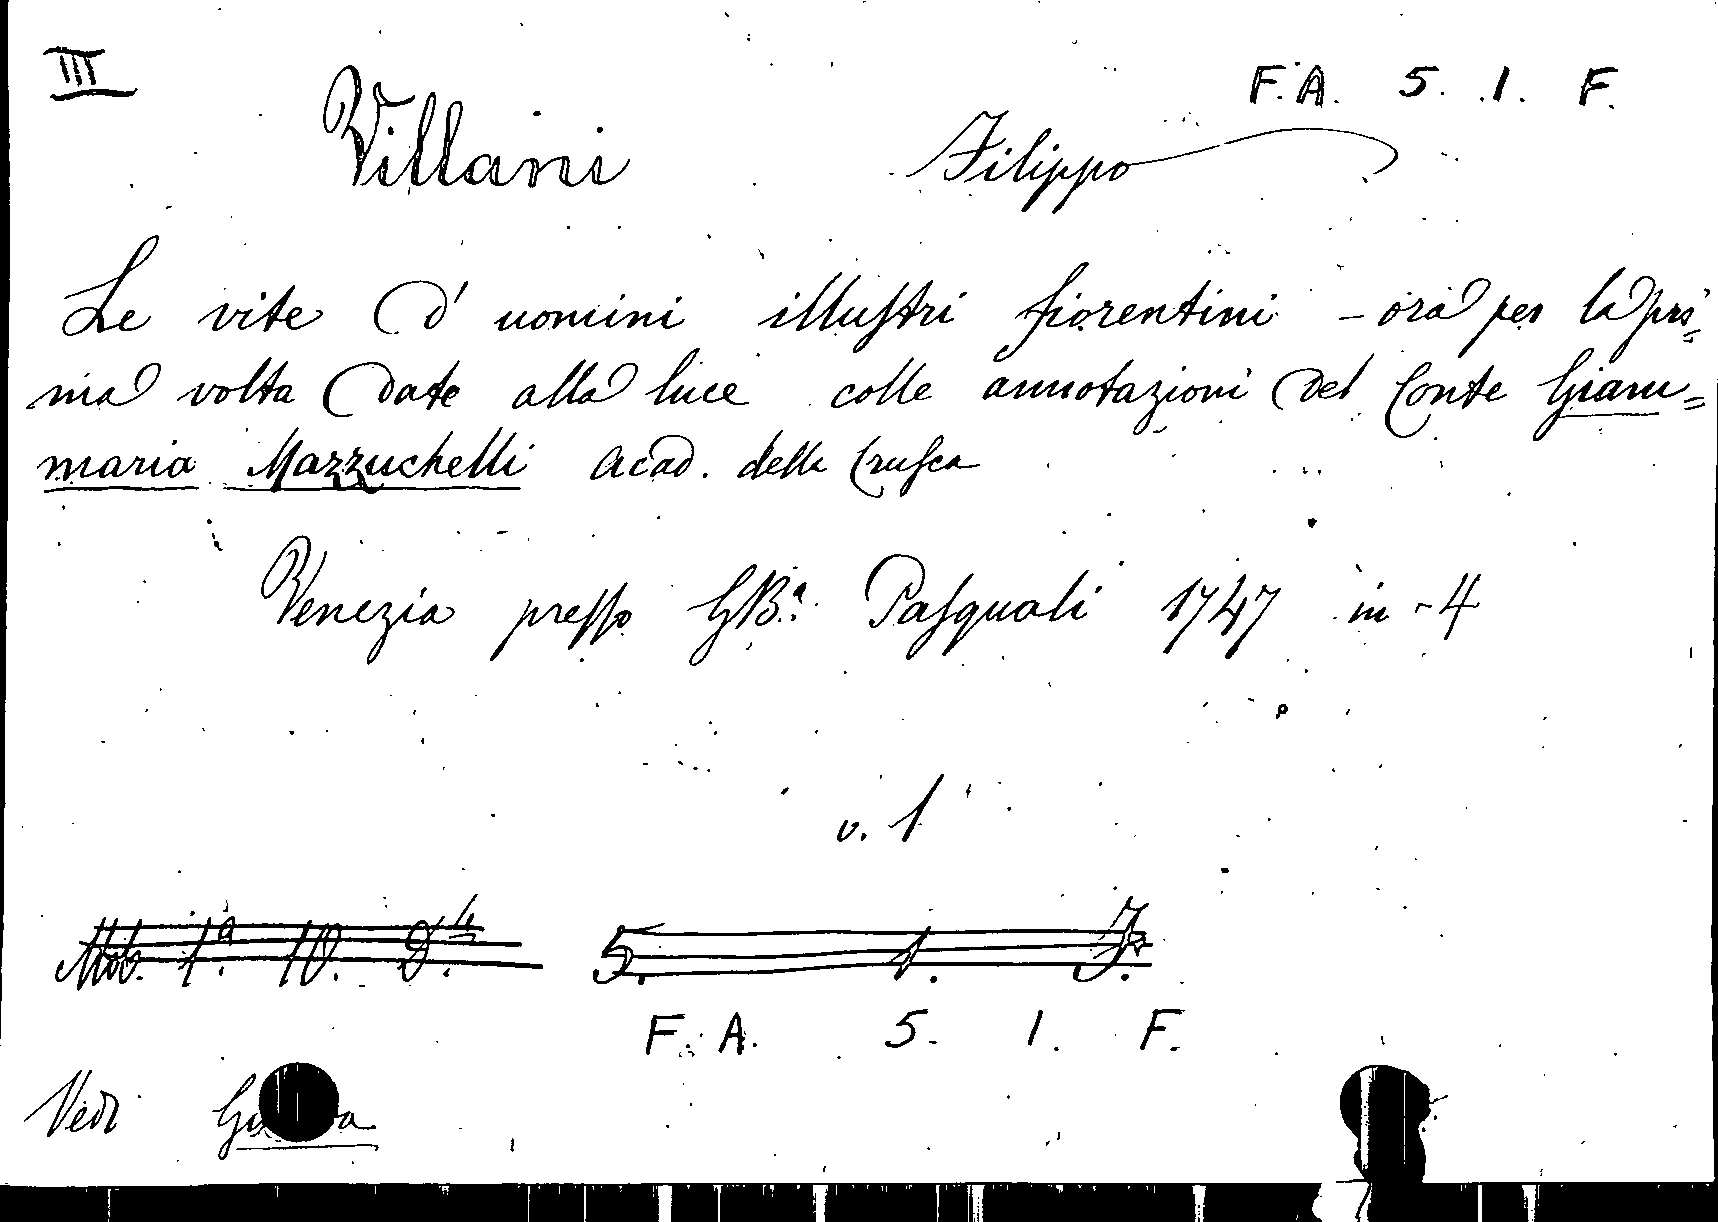 III F.A. 5. 1. F.
Villani Filippo
Le vite d'uomini illustri fiorentini - ora per la pri=
ma volta date alla luce colle annotazioni del Conte Giam=
maria Mazzuchelli Acad. della Crusca
Venezia presso GBa. Pasquali 1747 in-4
v. 1
Mob. 1a. 10. D.4 5. 1. F.
F. A. 5. 1. F.
Vedi